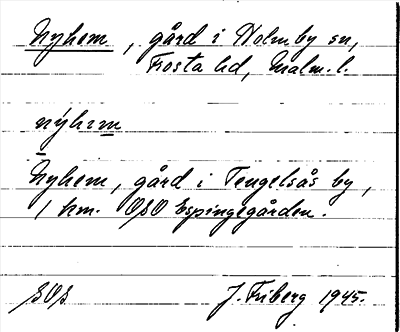 Nyhem, gård i Holmby sn,
Frosta hd, Malm. l.
nýhem
Nyhem, gård i Tengelsås by,
1 km. OSO Espingegården.
SOS J. Friberg 1945.